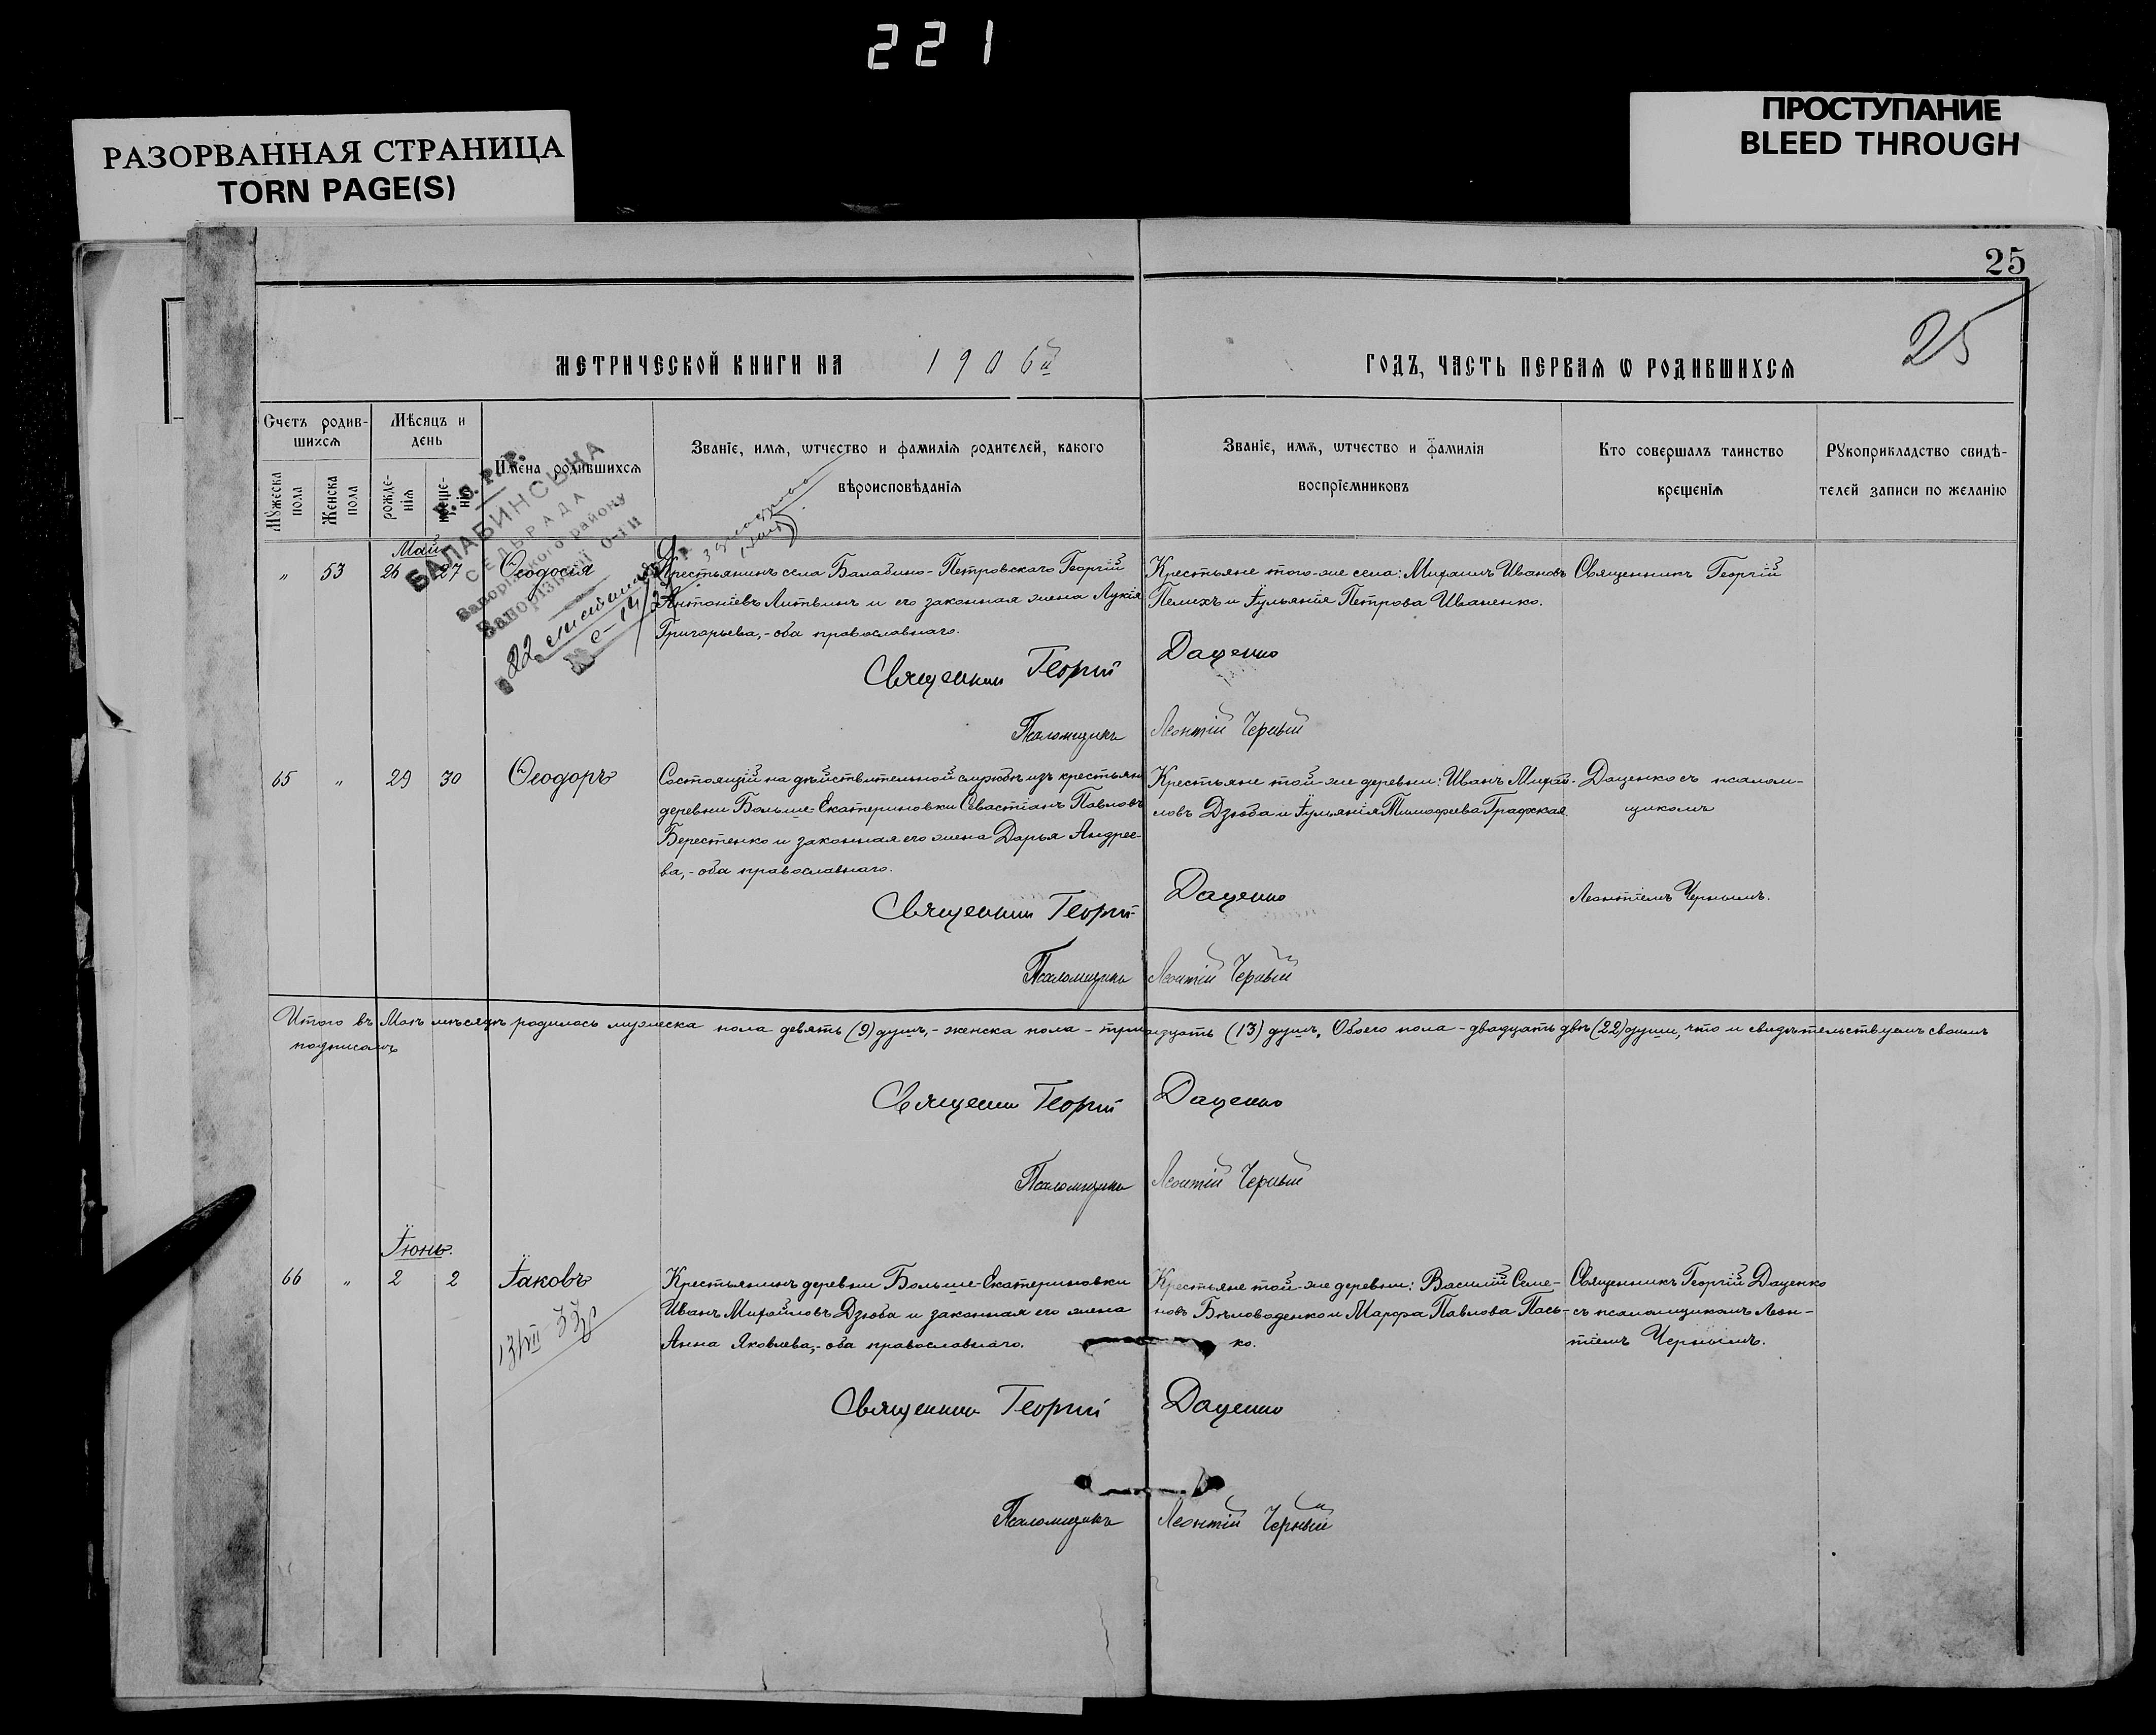 221
РАЗОРВАННАЯ СТРАНИЦА
TORN PAGE(S)
ПРОСТУПАНИЕ
BLEED THROUGH
25
25
МЕТРИЧЕСКОЙ КНИГИ НА 1906й ГОДЪ, ЧАСТЬ ПЕРВАЯ Ѡ РОДИВШИХСЯ
Счетъ родив-
шихся
Мѣсяцъ и
день
Мужеска пола
Женска пола
рожде-
нія
креще-
нія
Имена родившихся
Званіе, имя, ѡтчество и фамилія родителей, какого
вѣроисповѣданія
Званіе, имя, ѡтчество и фамилія
воспріемниковъ
Кто совершалъ таинство
крещенія
Рукоприкладство свидѣ-
телей записи по желанію
БАЛАБИНСЬКА
СЕЛЬРАДА
Запорізького району
Май
" 53 26 27 Ѳеодосія
Крестьянинъ села Балабино-Петровскаго Георгій
Антоніевъ Литвинъ и его законная жена Лукія
Григорьева,- оба православнаго.
Крестьяне того-же села: Михаилъ Ивановъ
Пелихъ и Іульянія Петрова Иваненко.
Священникъ Георгій
Священникъ Георгій Даценко
Псаломщикъ Леонтій Черный
65 " 29 30 Ѳеодоръ
Состоящій на дѣйствительной службѣ изъ крестьянъ
деревни Больше-Екатериновки Севастіанъ Павловъ
Берестенко и законная его жена Дарья Андрее-
ва,- оба православнаго.
Крестьяне той-же деревни: Иванъ Михай-
ловъ Дзюба и Іульянія Тимофеева Графская.
Даценко съ псалом-
щикомъ
Леонтіемъ Чернымъ.
Священникъ Георгій Даценко
Псаломщикъ Леонтій Черный
Итого въ Маѣ мѣсяцѣ родилось мужеска пола девять (9) душъ,- женска пола - тринадцать (13) душъ. Обоего пола - двадцать двѣ (22) души, что и свидѣтельствуемъ своимъ
подписомъ
Священникъ Георгій Даценко
Псаломщикъ Леонтій Черный
Іюнь.
66 " 2 2 Іаковъ
Крестьянинъ деревни Больше-Екатериновки
Иванъ Михайловъ Дзюба и законная его жена
Анна Яковлева,- оба православнаго.
Крестьяне той-же деревни: Василій Семе-
новъ Бѣловоденко и Марфа Павлова Пась-
ко.
Священникъ Георгій Даценко
съ псаломщикомъ Леон-
тіемъ Чернымъ.
Священникъ Георгій Даценко
Псаломщикъ Леонтій Черный